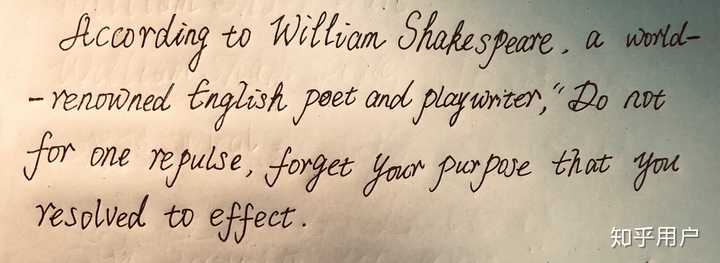 According to William Shakespeare, a world-
-renowned English poet and playwriter, "Do not
for one repulse, forget your purpose that you
resolved to effect.
知乎用户